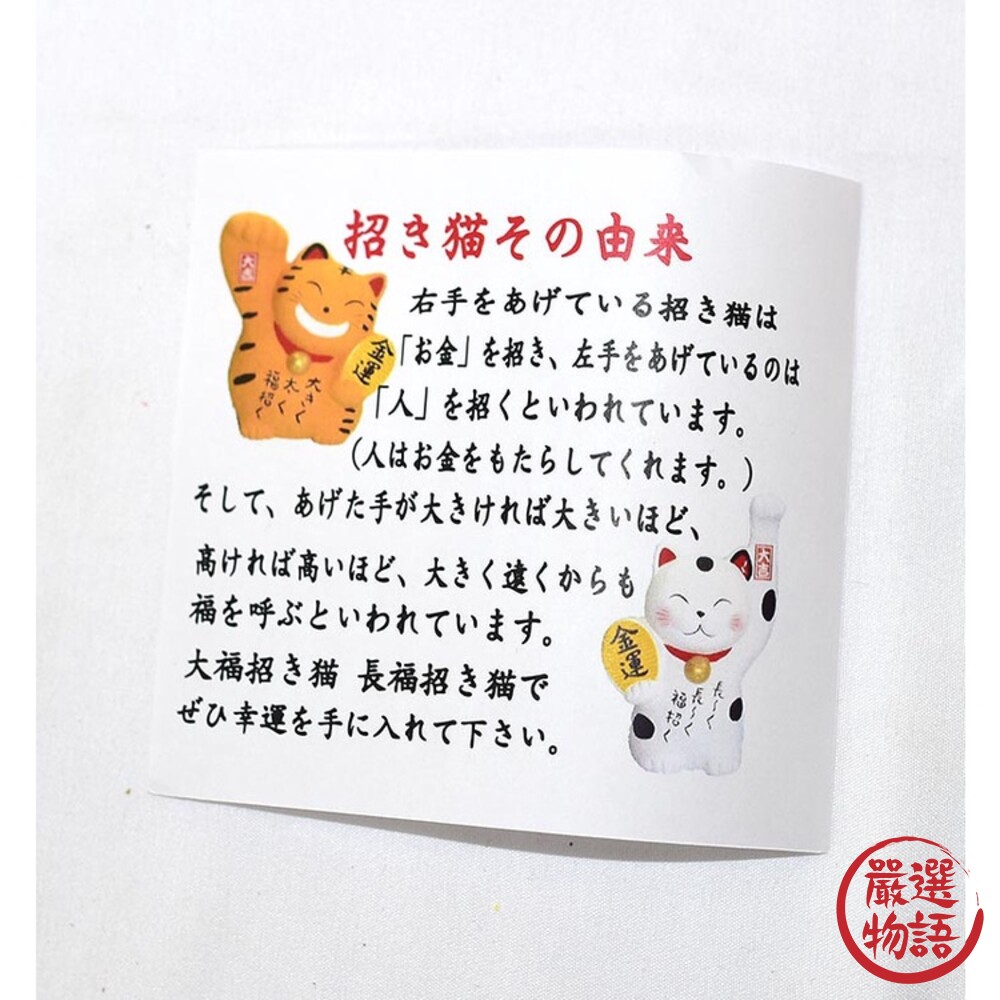 招き猫その由来
右手をあげている招き猫は
「お金」を招き、左手をあげているのは
「人」を招くといわれています。
(人はお金をもたらしてくれます。)
そして、あげた手が大きければ大きいほど、
高ければ高いほど、大きく遠くからも
福を呼ぶといわれています。
大福招き猫 長福招き猫で
ぜひ幸運を手に入れて下さい。
金運
大きく
太く
福招く
金運
長〜く
長〜く
福招く
嚴選
物語